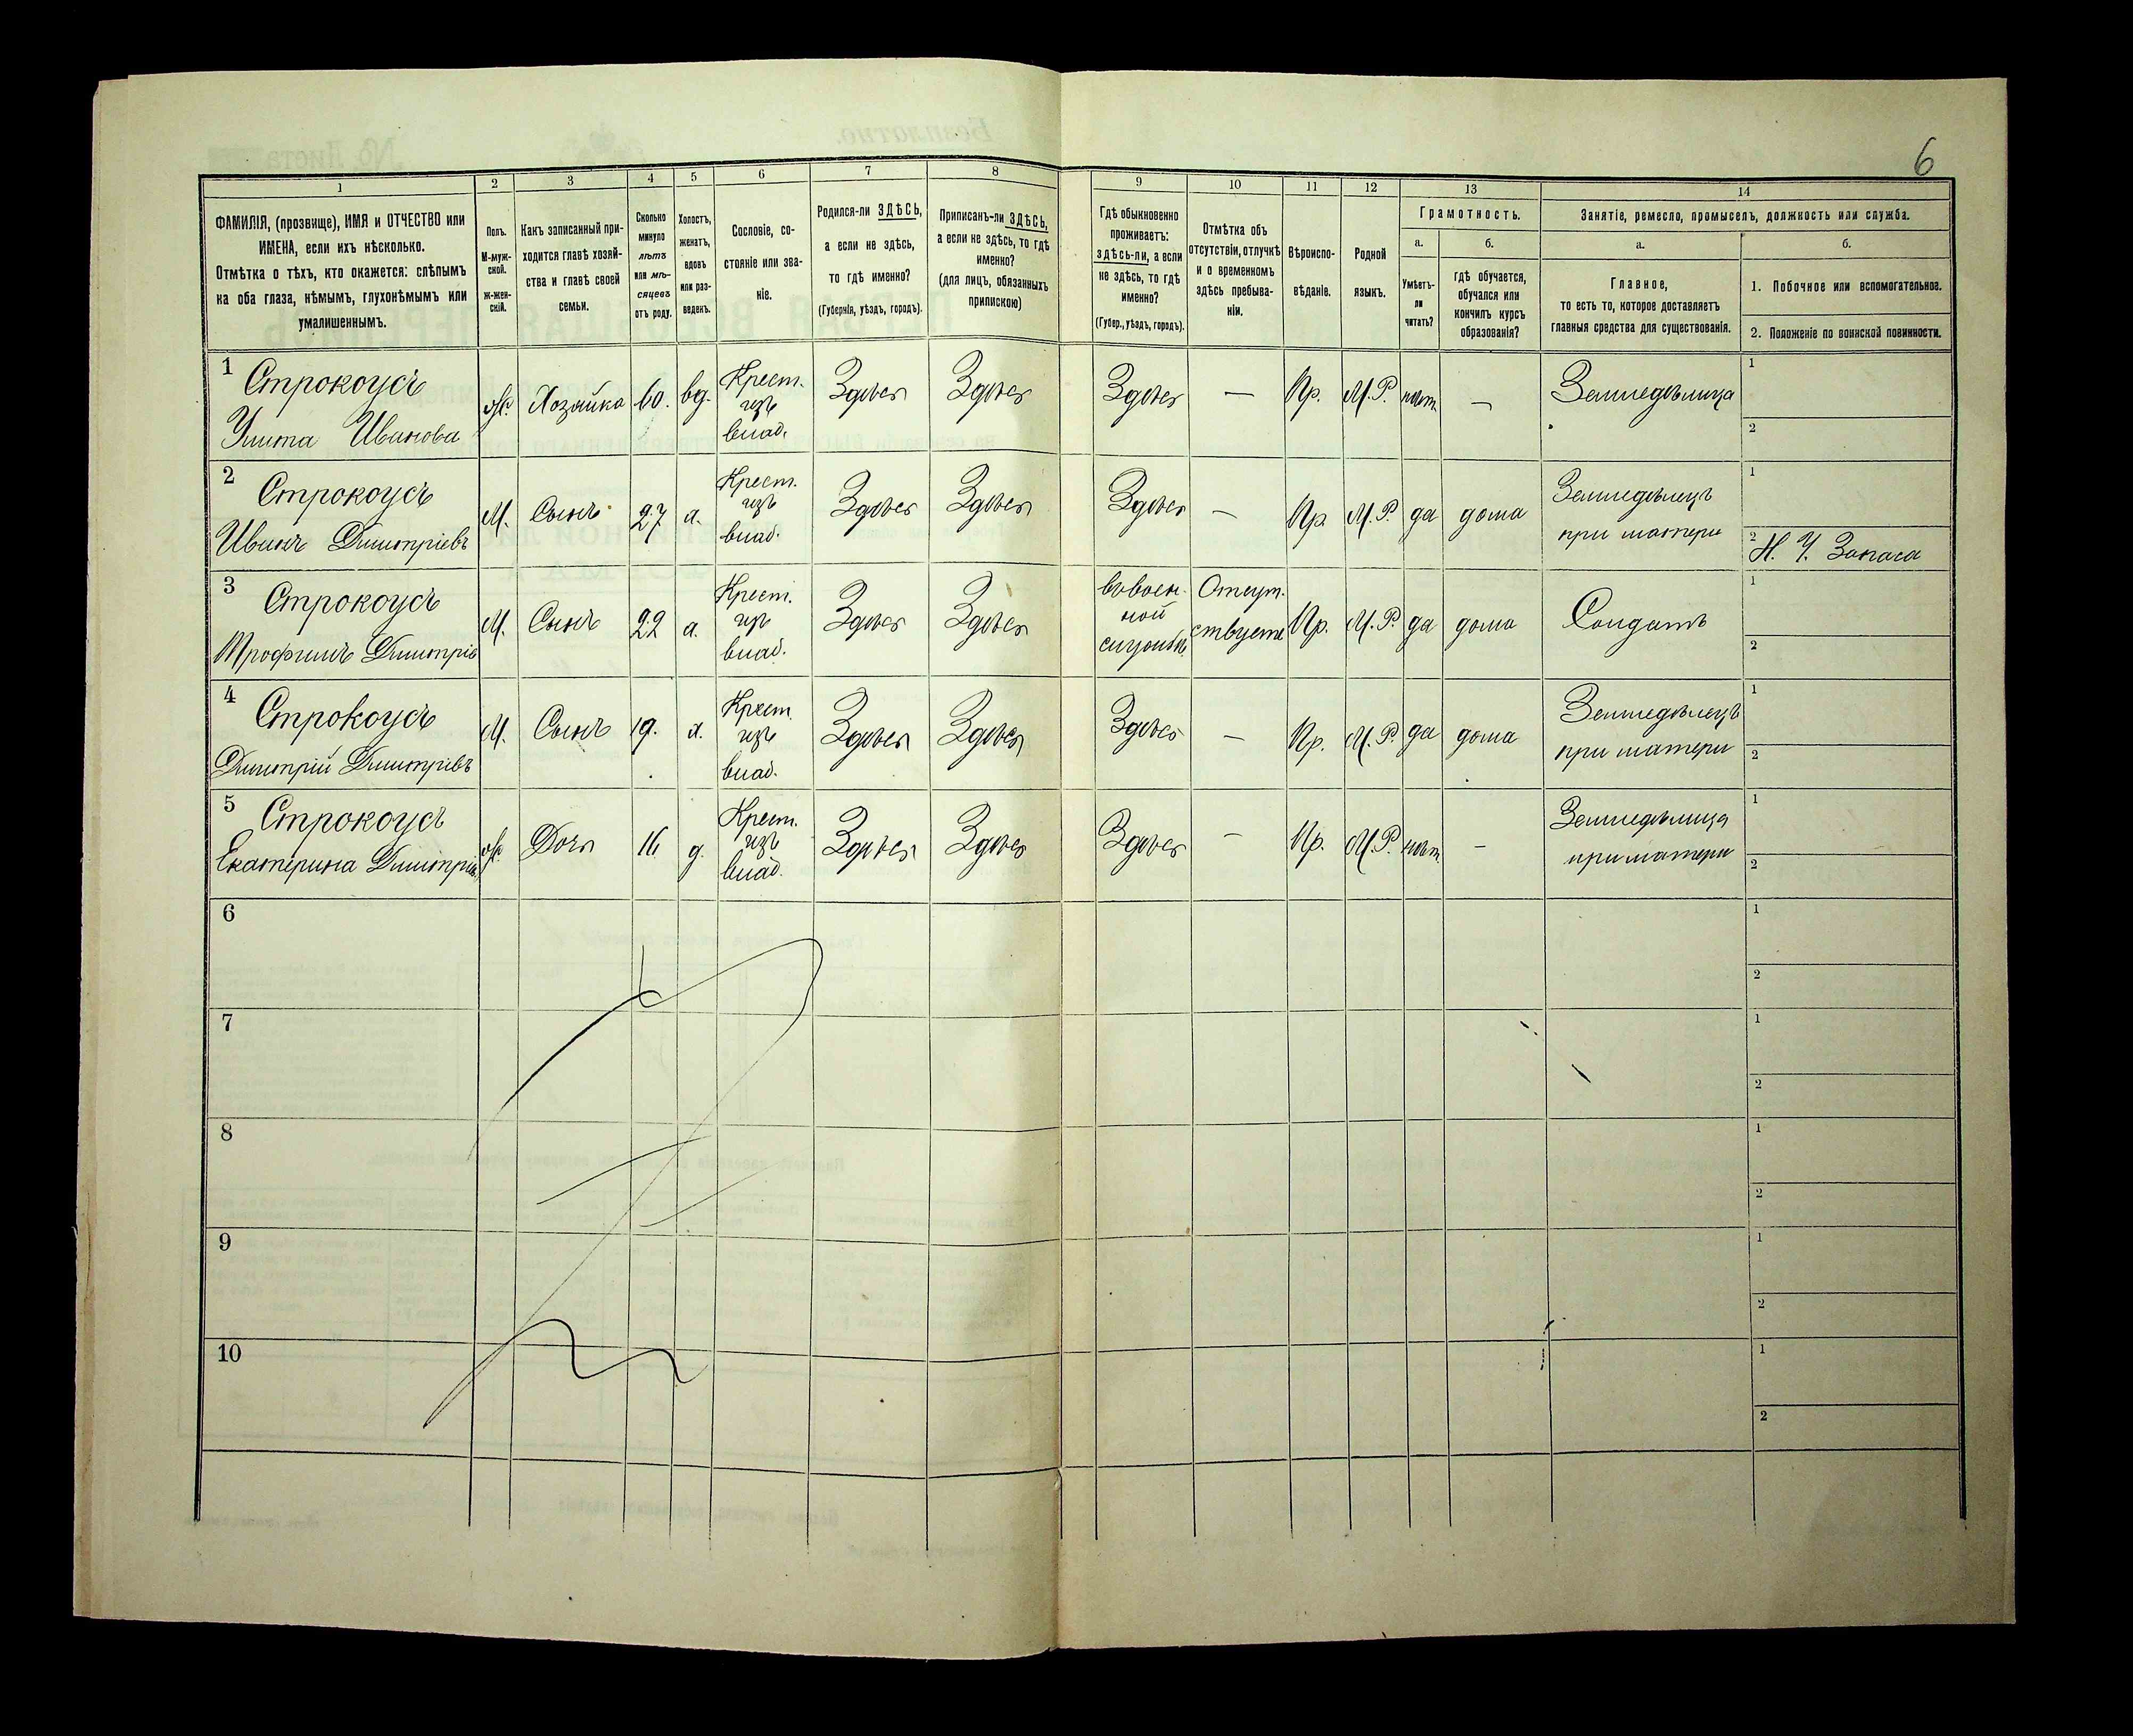 6
1 2 3 4 5 6 7 8 9 10 11 12 13 14
ФАМИЛІЯ, (прозвище), ИМЯ и ОТЧЕСТВО или
ИМЕНА, если ихъ нѣсколько.
Отмѣтка о тѣхъ, кто окажется: слѣпымъ
на оба глаза, нѣмымъ, глухонѣмымъ или
умалишеннымъ.
Полъ.
М-муж-
ской.
Ж-жен-
скій.
Какъ записанный при-
ходится главѣ хозяй-
ства и главѣ своей
семьи.
Сколько
минуло
лѣтъ
или мѣ-
сяцевъ
отъ роду.
Холостъ,
женатъ,
вдовъ
или раз-
веденъ.
Сословіе, со-
стояніе или зва-
ніе.
Родился-ли ЗДѢСЬ,
а если не здѣсь,
то гдѣ именно?
(Губернія, уѣздъ, городъ).
Приписанъ-ли ЗДѢСЬ,
а если не здѣсь, то гдѣ
именно?
(для лицъ, обязанныхъ
припискою)
Гдѣ обыкновенно
проживаетъ:
здѣсь-ли, а если
не здѣсь, то гдѣ
именно?
(Губер., уѣздъ, городъ).
Отмѣтка объ
отсутствіи, отлучкѣ
и о временномъ
здѣсь пребыва-
ніи.
Вѣроиспо-
вѣданіе.
Родной
языкъ.
Грамотность.
а. б.
Умѣетъ-
ли
читать?
гдѣ обучается,
обучался или
кончилъ курсъ
образованія?
Занятіе, ремесло, промыселъ, должность или служба.
а. б.
Главное,
то есть то, которое доставляетъ
главныя средства для существованія.
1. Побочное или вспомогательное.
2. Положеніе по воинской повинности.
1 Строкоусъ
Улита Иванова
ж. Хозяйка 60. вд. Крест.
изъ
влад.
Здѣсь Здѣсь Здѣсь — Пр. М.Р. нѣт. — Земледѣлица
1
2
2 Строкоусъ
Иванъ Димитріевъ
М. Сынъ 27 х. Крест.
изъ
влад.
Здѣсь Здѣсь Здѣсь — Пр. М.Р. да дома Земледѣлецъ
при матери
1
2 Н. Ч. Запаса
3 Строкоусъ
Трофимъ Димитріе
М. Сынъ 22 х. Крест.
изъ
влад.
Здѣсь Здѣсь въ воен-
ной
службѣ
Отсут-
ствуетъ
Пр. М.Р. да дома Солдатъ
1
2
4 Строкоусъ
Димитрій Димитріевъ
М. Сынъ 19. х. Крест.
изъ
влад.
Здѣсь Здѣсь Здѣсь — Пр. М.Р. да дома Земледѣлецъ
при матери
1
2
5 Строкоусъ
Екатерина Димитріев
ж. Дочь 16 д. Крест.
изъ
влад.
Здѣсь Здѣсь Здѣсь — Пр. М.Р. нѣт. — Земледѣлица
при матери
1
2
6
1
2
7
1
2
8
1
2
9
1
2
10
1
2